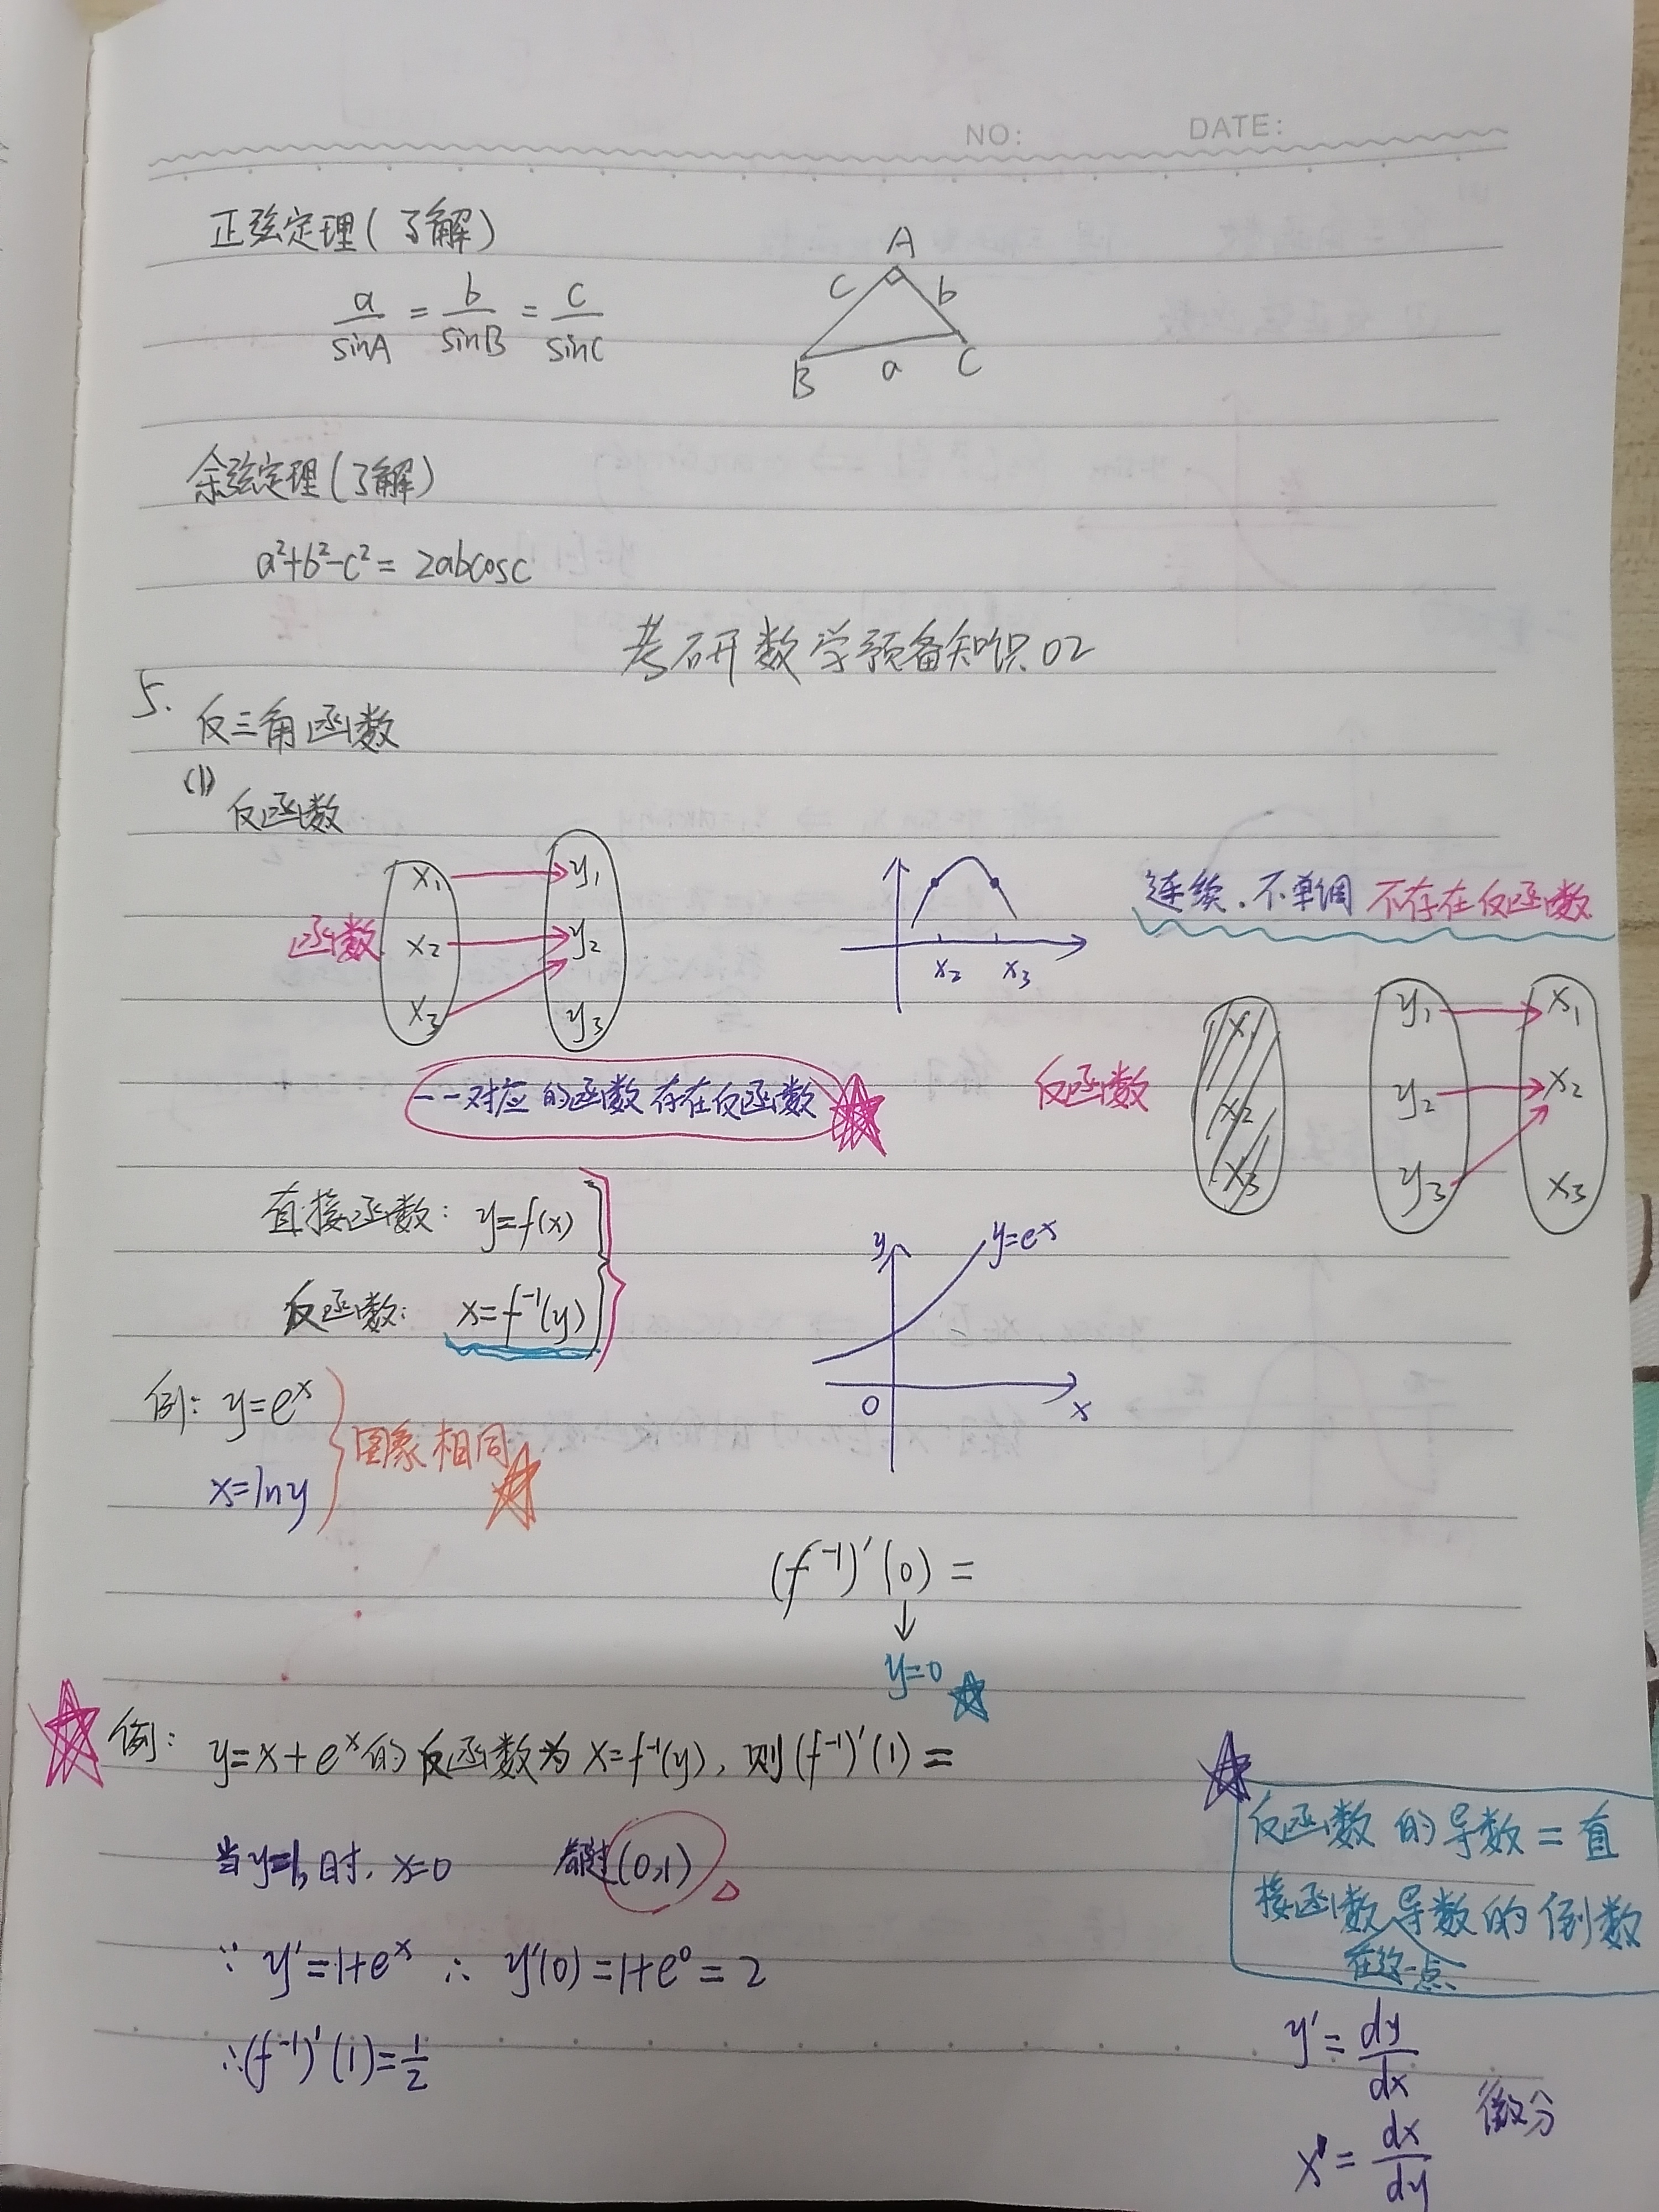 NO: DATE:
正弦定理(了解)
a/sinA = b/sinB = c/sinC
A
c b
B a C
余弦定理(了解)
a²+b²-c²= 2abcosc
考研数学预备知识02
5. 反三角函数
(1) 反函数
函数
x₁ y₁
x₂ y₂
x₃ y₃
x₂ x₃
连续.不单调 不存在反函数
一一对应的函数存在反函数
反函数
x₁ y₁ x₁
x₂ y₂ x₂
x₃ y₃ x₃
直接函数: y=f(x)
反函数: x=f⁻¹(y)
y y=eˣ
0 x
例: y=eˣ
x=lny
图象相同
(f⁻¹)'(0) =
↓
y=0
例: y=x+eˣ的反函数为x=f⁻¹(y), 则(f⁻¹)'(1) =
当y=1时, x=0 都过(0,1)
∵ y'=1+eˣ ∴ y'(0)=1+e⁰=2
∴(f⁻¹)'(1)=1/2
反函数的导数=直
接函数导数的倒数
在这一点
y'= dy/dx
微分
x'= dx/dy